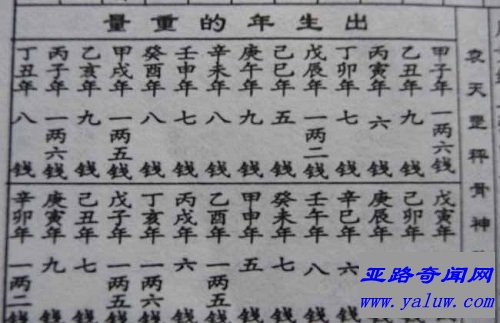 袁天罡秤骨神
出生年的重量
甲子年 一两六錢
乙丑年 九 錢
丙寅年 六 錢
丁卯年 七 錢
戊辰年 一两二錢
己巳年 五 錢
庚午年 九 錢
辛未年 八 錢
壬申年 七 錢
癸酉年 八 錢
甲戌年 一两五錢
乙亥年 九 錢
丙子年 一两六錢
丁丑年 八 錢
戊寅年
己卯年
庚辰年
辛巳年 六
壬午年 八
癸未年 七 錢
甲申年 五 錢
乙酉年 一两五錢
丙戌年 六 錢
丁亥年 一两六錢
戊子年 一两五錢
己丑年 七 錢
庚寅年 九 錢
辛卯年 一两二錢
亚路奇闻网
www.yaluw.com